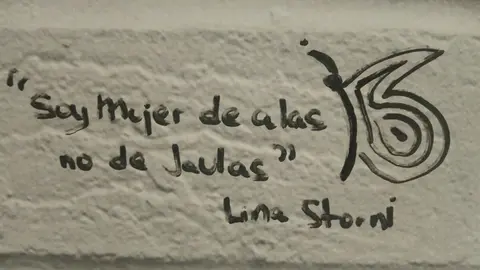 "Soy Mujer de alas
no de Jaulas"
Lina Storni